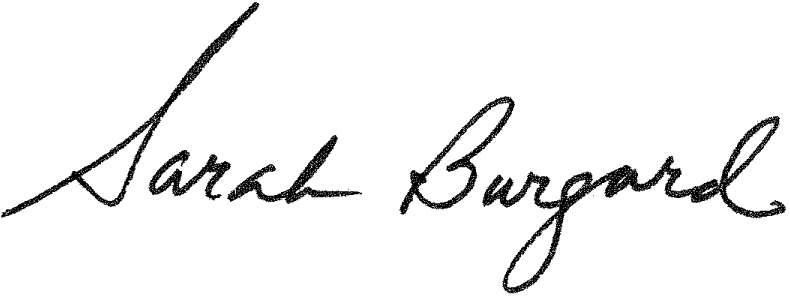 Sarah Burgard